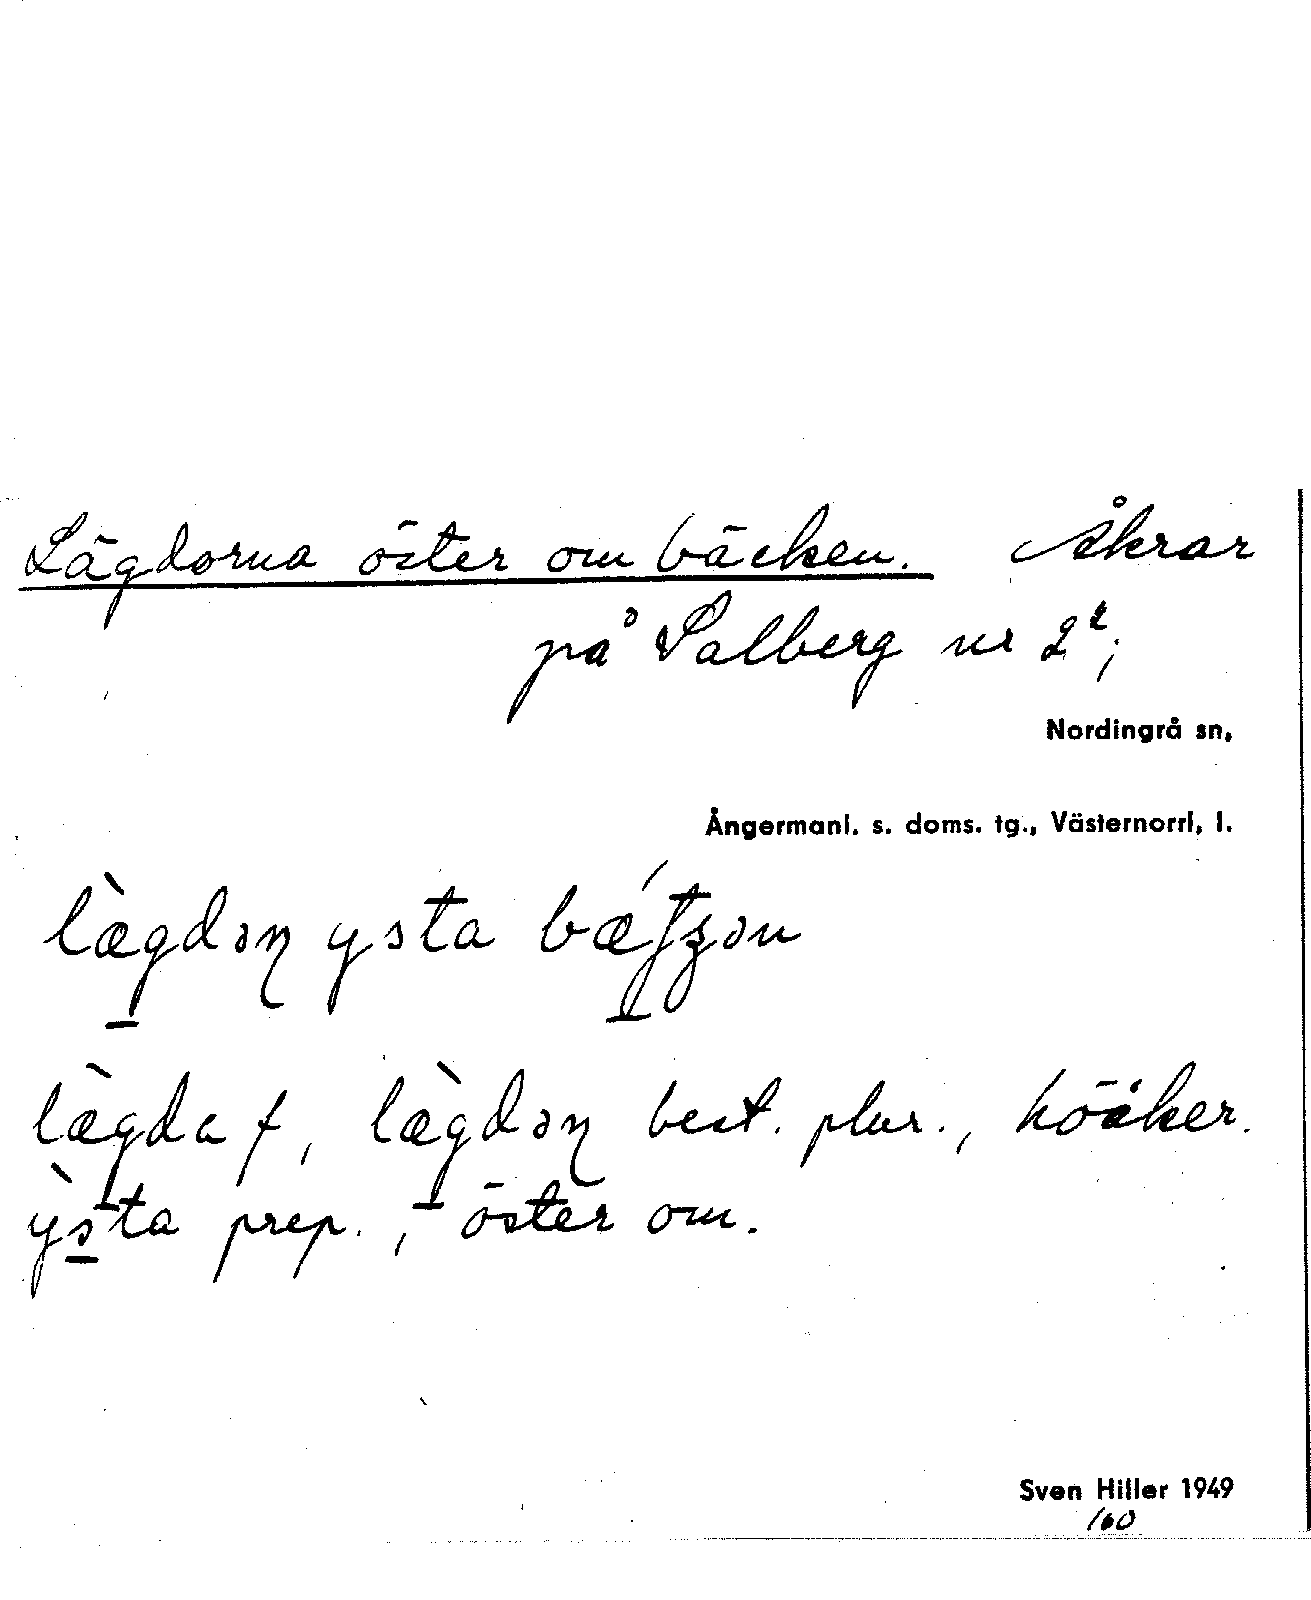 Lägdorna öster om bäcken. Åkrar
på Salberg nr 2²;
Nordingrå sn,
Ångermanl. s. doms. tg., Västernorrl. l.
læ̀gdəɳ ysta bǽʃʒən
læ̀gda f, læ̀gdəɳ best. plur., höåker.
ỳsta prep., öster om.
Sven Hiller 1949
160